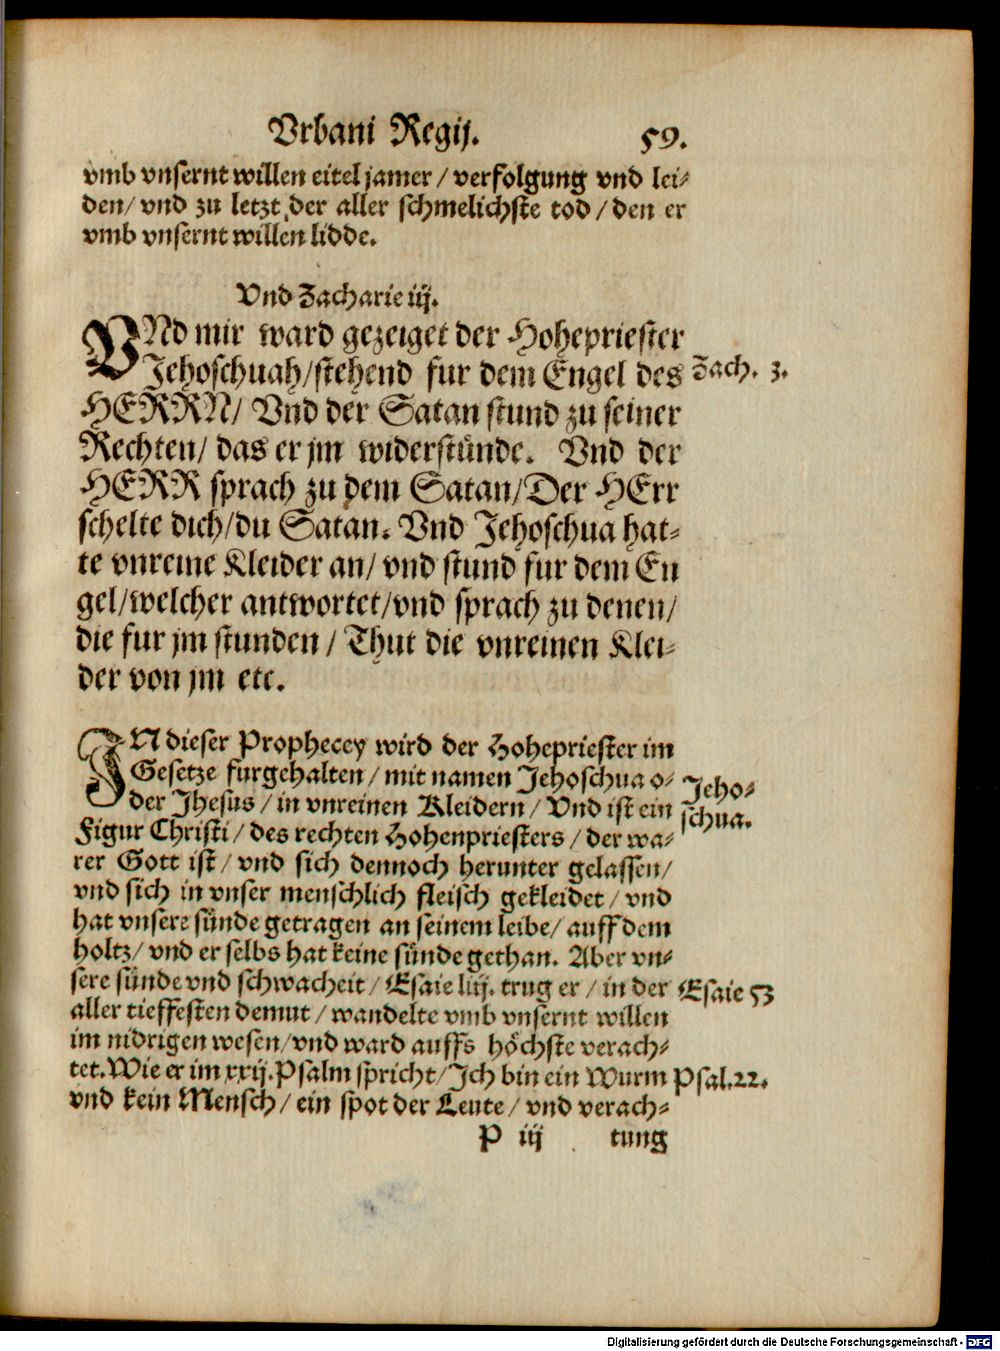 Vrbani Regij. 59.
vmb vnsernt willen eitel jamer / verfolgung vnd lei-
den / vnd zu letzt der aller schmelichste tod / den er
vmb vnsernt willen lidde.
Vnd Zacharie iij.
VNd mir ward gezeiget der Hohepriester
Jehoschuah / stehend fur dem Engel des Zach. 3.
HERRN / Vnd der Satan stund zu seiner
Rechten / das er jm widerstünde. Vnd der
HERR sprach zu dem Satan / Der HErr
schelte dich / du Satan. Vnd Jehoschua hat-
te vnreine Kleider an / vnd stund fur dem En
gel / welcher antwortet / vnd sprach zu denen /
die fur jm stunden / Thut die vnreinen Klei-
der von jm etc.
IN dieser Prophecey wird der Hohepriester im
Gesetze furgehalten / mit namen Jehoschua o- Jeho-
der Jhesus / in vnreinen Kleidern / Vnd ist ein schua.
Figur Christi / des rechten Hohenpriesters / der wa-
rer Gott ist / vnd sich dennoch herunter gelassen /
vnd sich in vnser menschlich fleisch gekleidet / vnd
hat vnsere sünde getragen an seinem leibe / auff dem
holtz / vnd er selbs hat keine sünde gethan. Aber vn-
sere sünde vnd schwacheit / Esaie liij. trug er / in der Esaie 53
aller tieffesten demut / wandelte vmb vnsernt willen
im nidrigen wesen / vnd ward auffs höchste verach-
tet. Wie er im xxij. Psalm spricht / Ich bin ein Wurm Psal. 22.
vnd kein Mensch / ein spot der Leute / vnd verach-
P iij tung
Digitalisierung gefördert durch die Deutsche Forschungsgemeinschaft - DFG